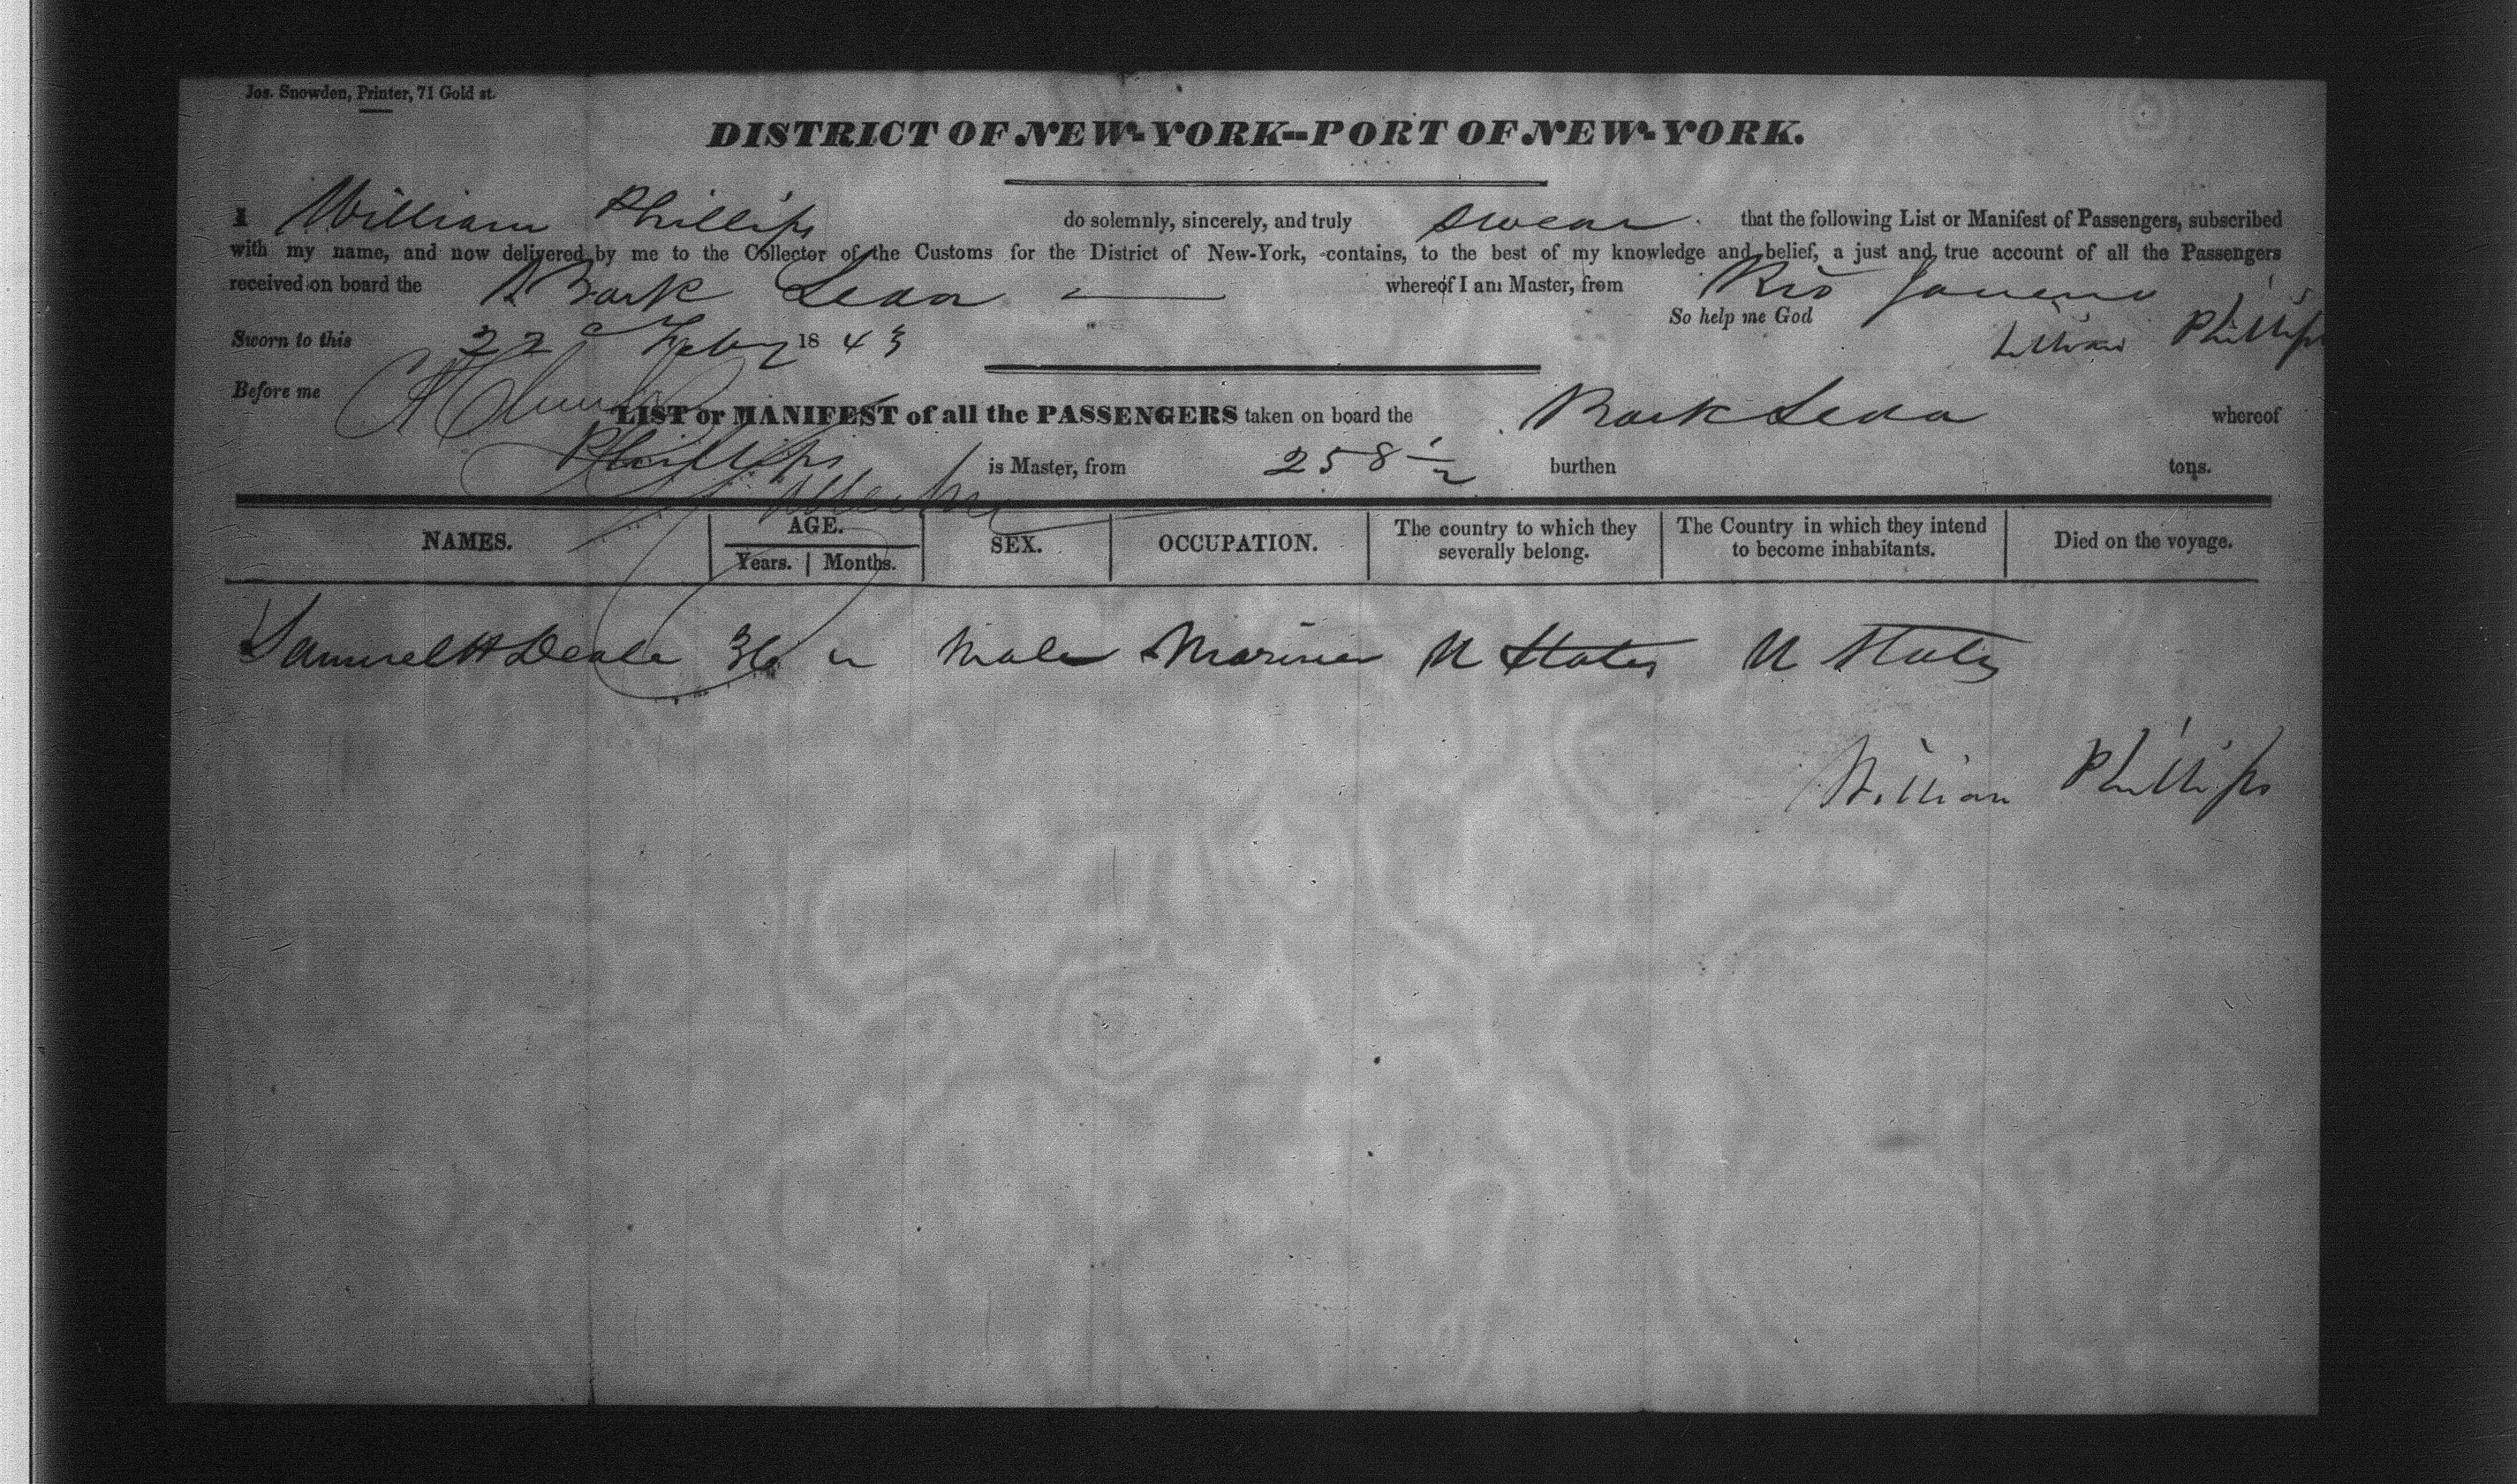 Jos. Snowden, Printer, 71 Gold st.
DISTRICT OF NEW-YORK--PORT OF NEW-YORK.
I William Phillips do solemnly, sincerely, and truly swear that the following List or Manifest of Passengers, subscribed
with my name, and now delivered by me to the Collector of the Customs for the District of New-York, contains, to the best of my knowledge and belief, a just and true account of all the Passengers
received on board the Bark Leda whereof I am Master, from Rio Janeiro
So help me God
William Phillips
Sworn to this 22d Feby 1843
Before me
LIST or MANIFEST of all the PASSENGERS taken on board the Bark Leda whereof
Phillips is Master, from 258 1/2 burthen tons.
NAMES. AGE. Years. Months. SEX. OCCUPATION. The country to which they severally belong. The Country in which they intend to become inhabitants. Died on the voyage.
Samuel H Deale 36 Male Mariner U States U States
William Phillips